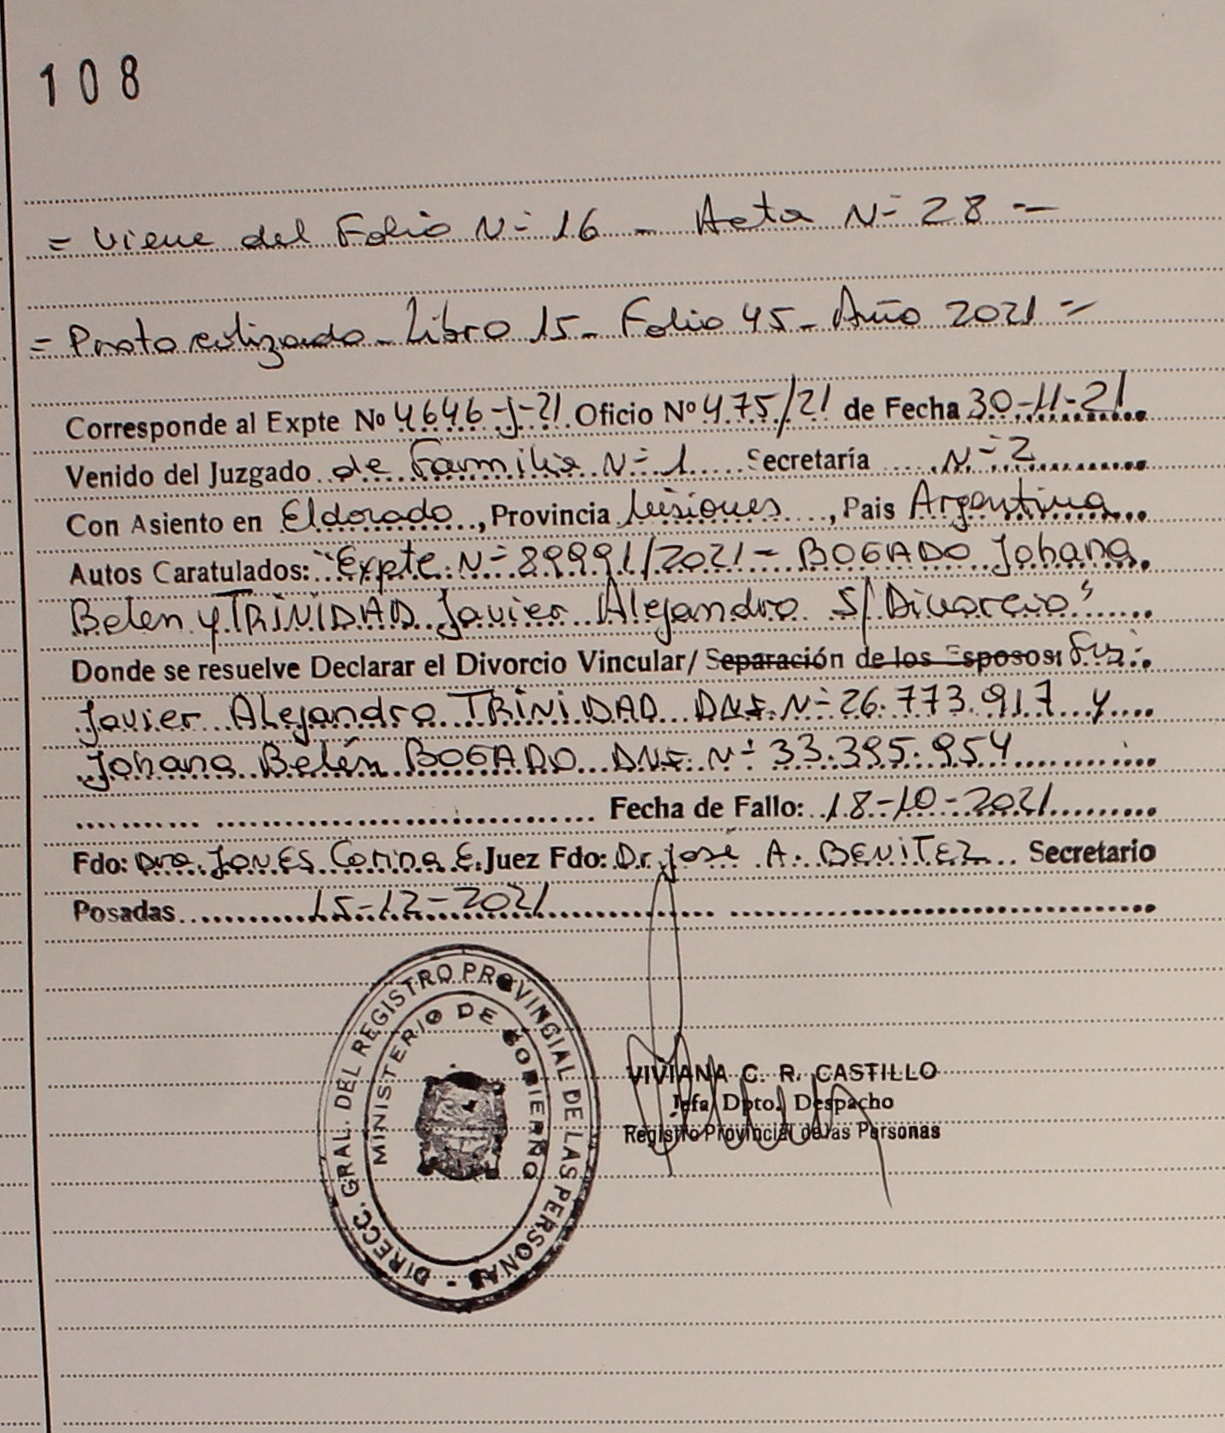 108
= Viene del Folio N- 16 - Acta N- 28 -
= Protocolizado - Libro 15 - Folio 45 - Año 2021 =
Corresponde al Expte Nº 4646-J-21 Oficio Nº 475/21 de Fecha 30-11-21
Venido del Juzgado de Familia N- 1 Secretaría N- 2
Con Asiento en Eldorado, Provincia Misiones, Pais Argentina
Autos Caratulados: "Expte N- 89991/2021 - BOGADO Johana
Belen y TRINIDAD Javier Alejandro S/ Divorcio"
Donde se resuelve Declarar el Divorcio Vincular/ Separación de los Esposos:
Javier Alejandro TRINIDAD DNI N- 26.773.917 y
Johana Belén BOGADO DNI N- 33.395.954
Fecha de Fallo: 18-10-2021
Fdo: Dra. JONES Corina E. Juez Fdo: Dr. José A. BENITEZ Secretario
Posadas 15-12-2021
DIRECC. GRAL. DEL REGISTRO PROVINCIAL DE LAS PERSONAS -
MINISTERIO DE GOBIERNO
VIVIANA C. R. CASTILLO
Jefa Dpto. Despacho
Registro Provincial de las Personas